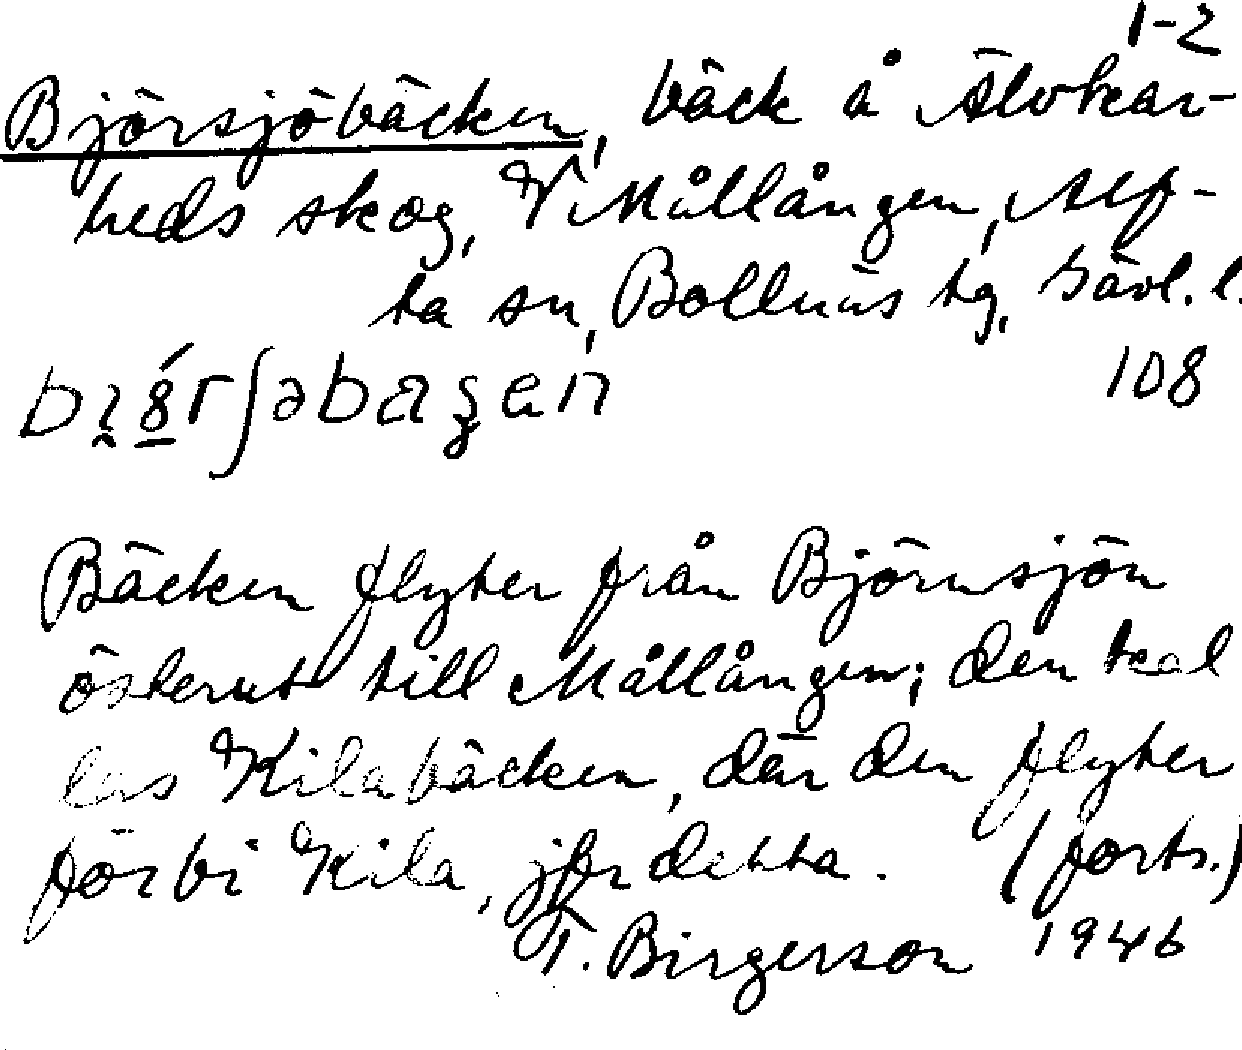 1-2
Björsjöbäcken, bäck å Älvkar-
heds skog, V Mållången, Alf-
ta sn, Bollnäs tg, Gävl. l.
108
Bäcken flyter från Björnsjön
österut till Mållången; den kal
las Kilabäcken, där den flyter
förbi Kila, jfr detta. (forts.)
T. Birgerson 1946